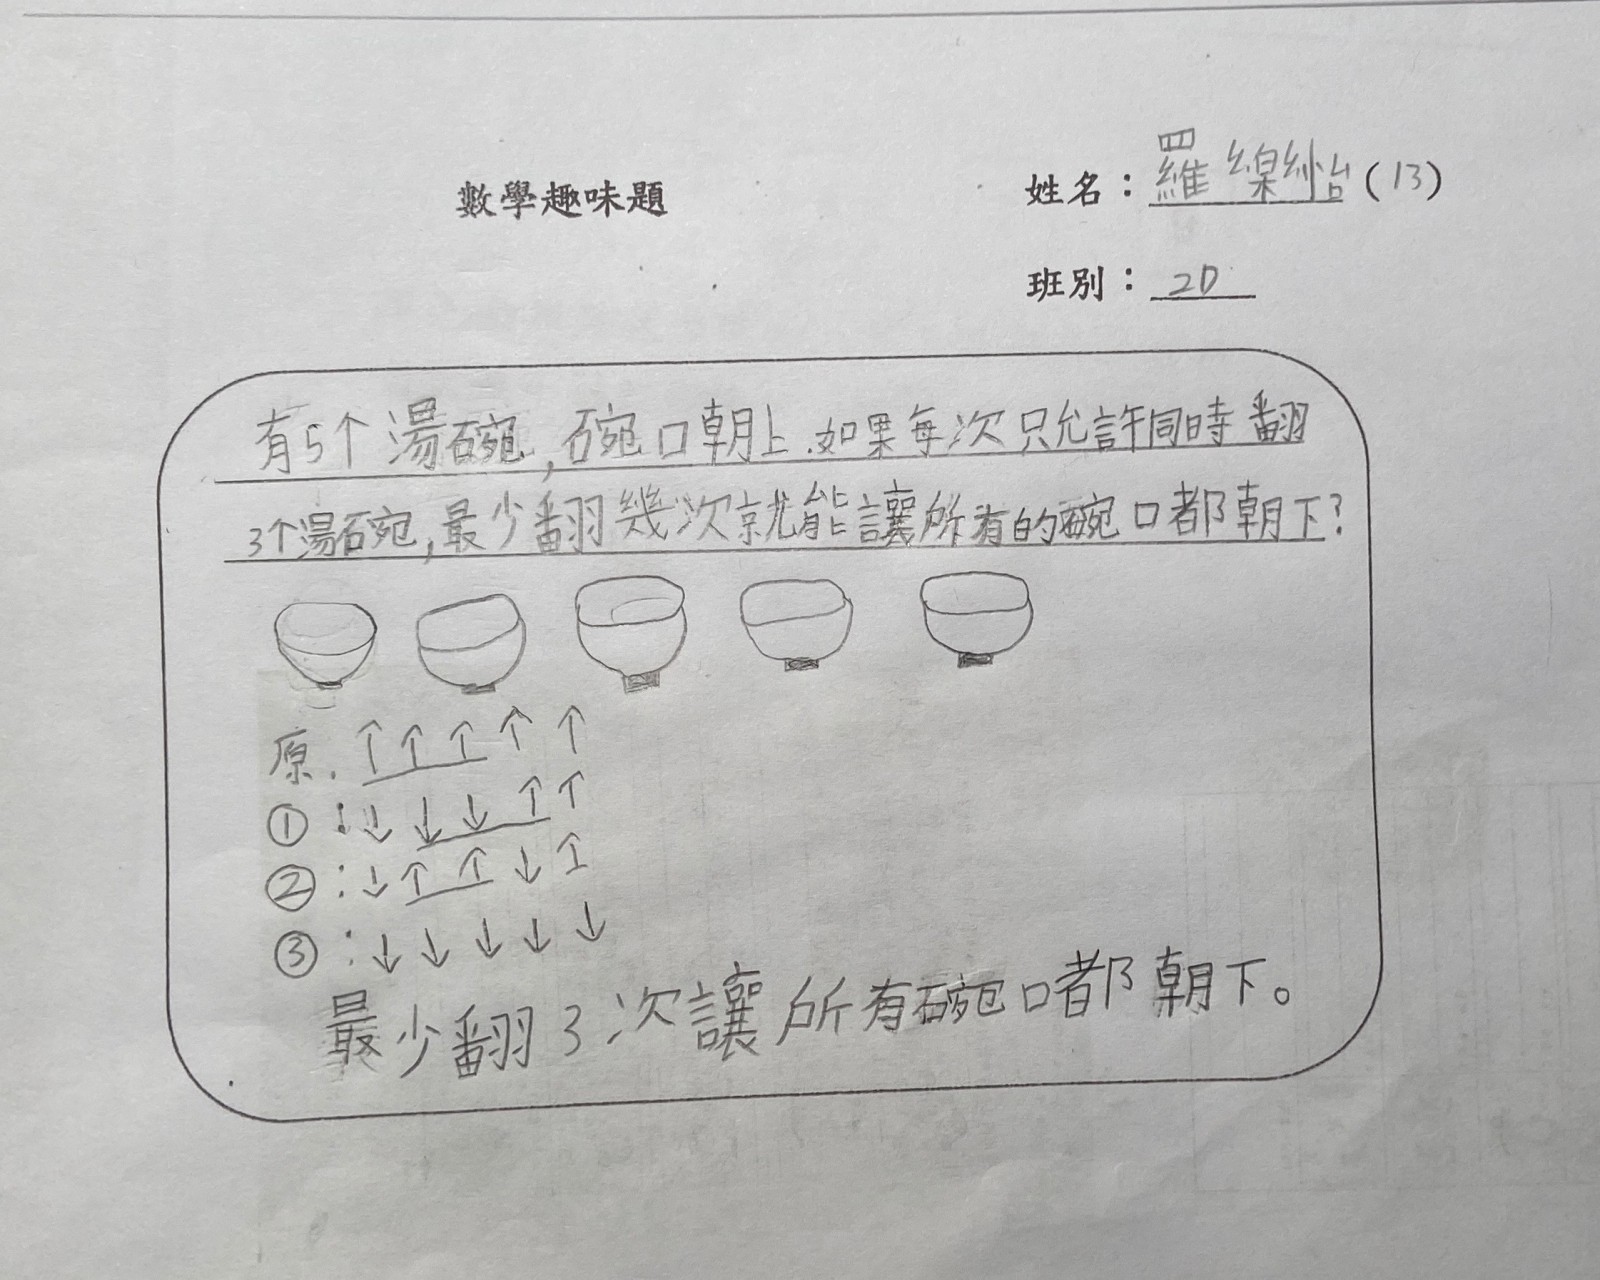 數學趣味題
姓名：羅 (13)
班別：2D
有5个湯碗,碗口朝上.如果每次只允許同時翻
3个湯碗,最少翻幾次就能讓所有的碗口都朝下?
原. ↑ ↑ ↑ ↑ ↑
①: ↓ ↓ ↓ ↑ ↑
②: ↓ ↑ ↑ ↓ ↑
③: ↓ ↓ ↓ ↓ ↓
最少翻3次讓所有碗口都朝下。